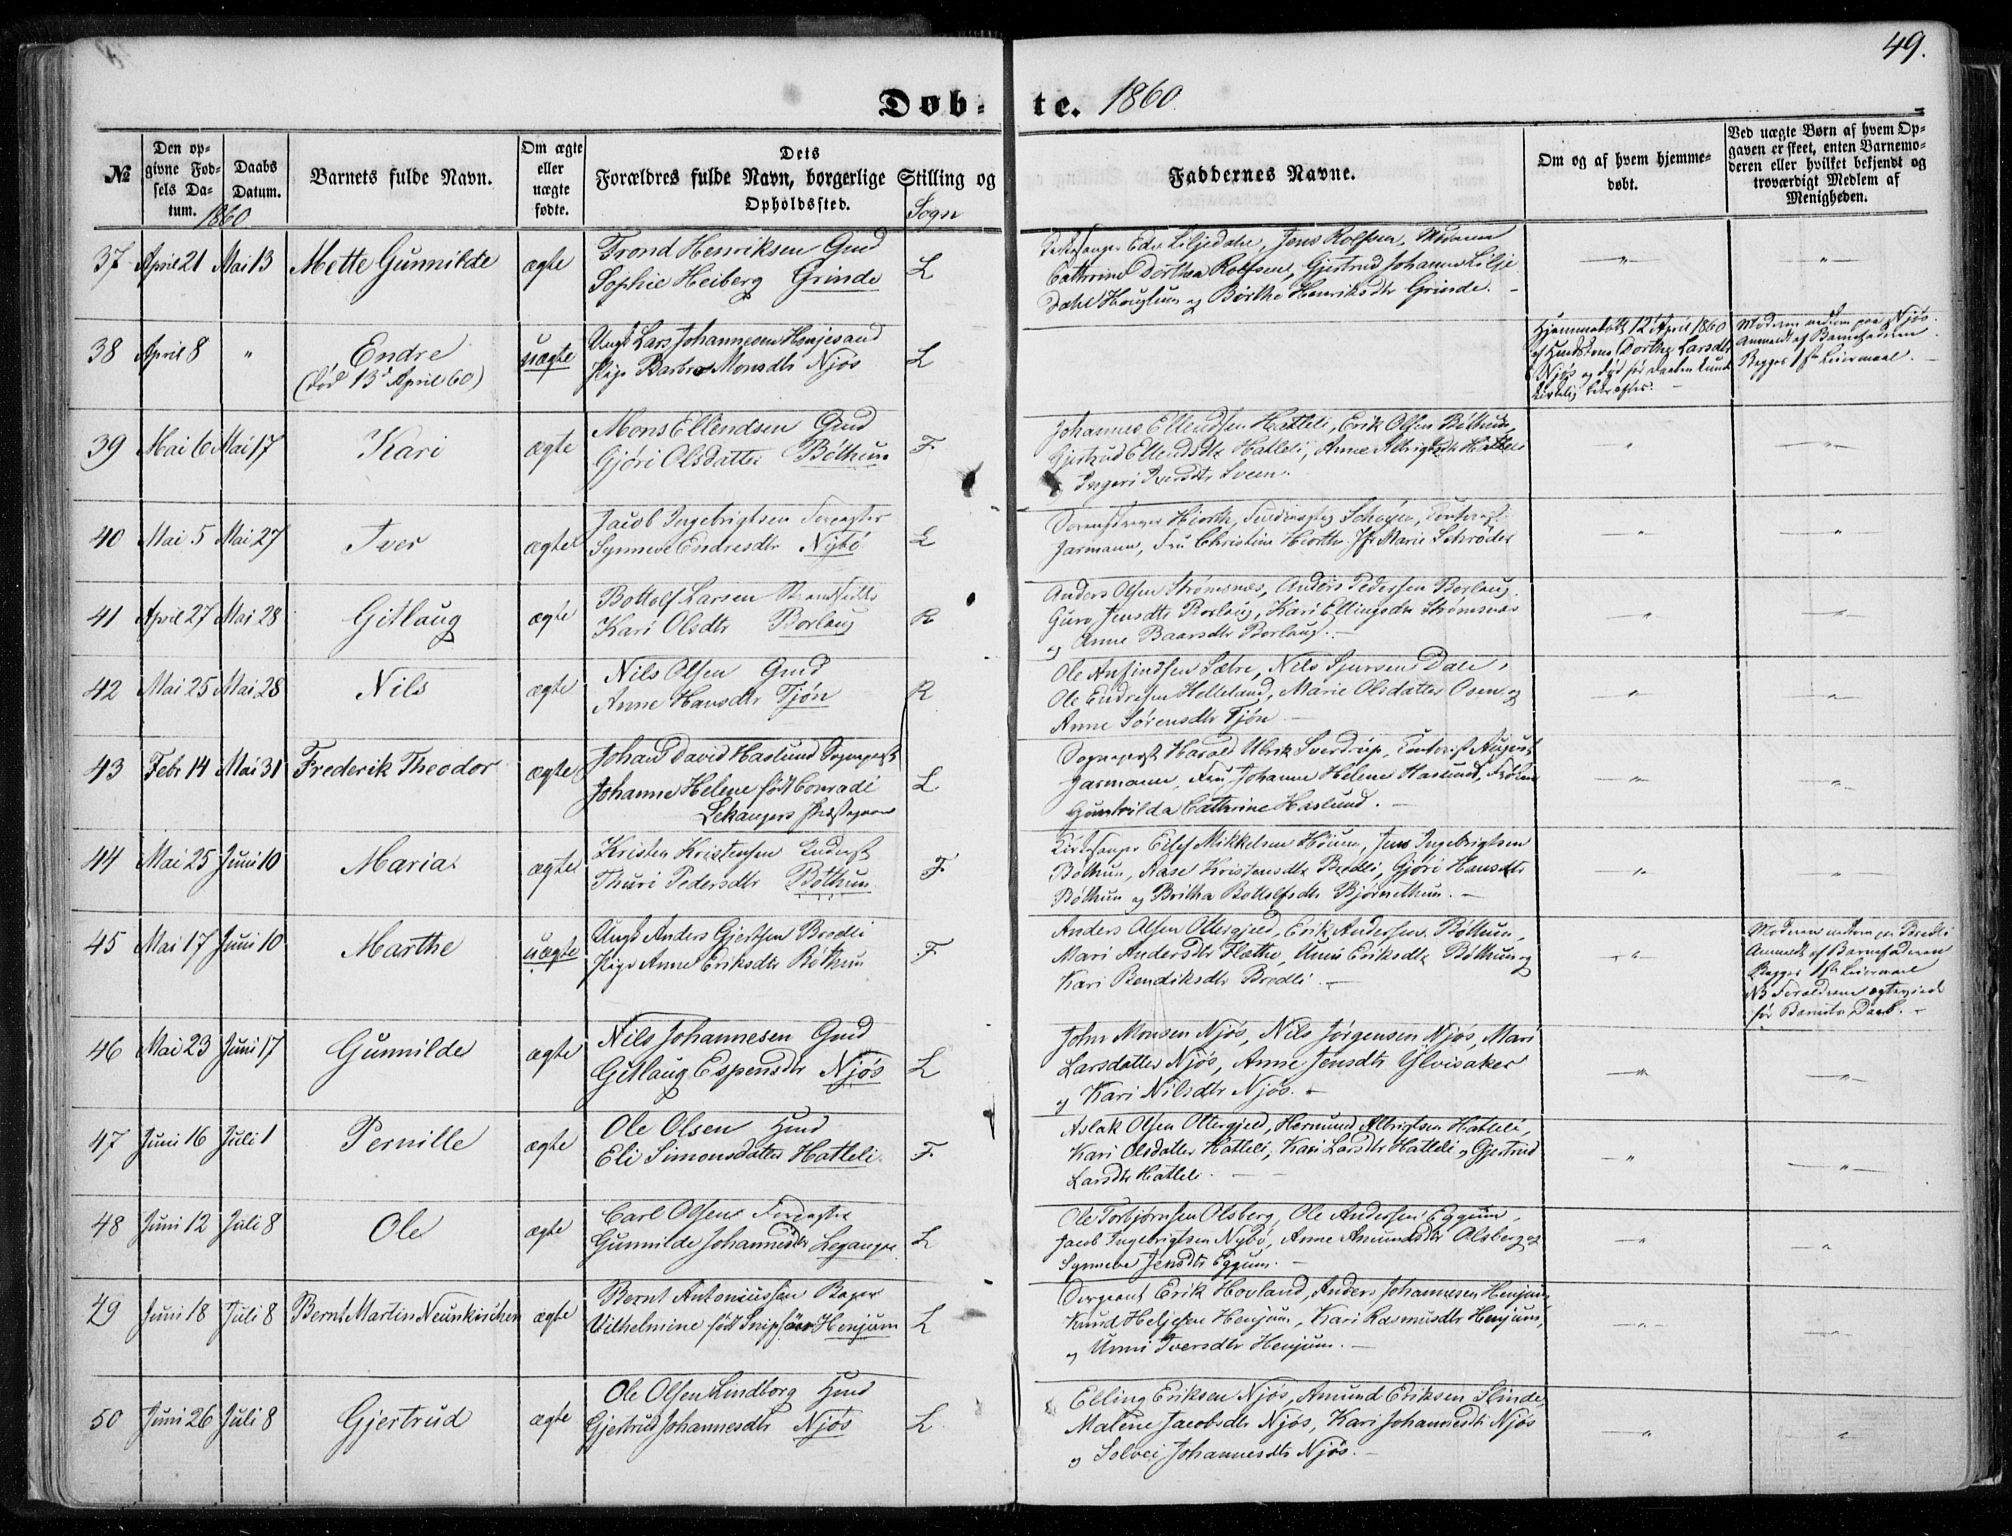 49.
Døb-te. 1860
№
Den op-
givne Fød-
sels Da-
tum.
1860
Daabs
Datum.
Barnets fulde Navn.
Om ægte
eller
uægte
fødte.
Dets
Forældres fulde Navn, borgerlige Stilling og
Opholdssted.
Sogn
Faddernes Navne.
Om og af hvem hjemme-
døbt.
Ved uægte Børn af hvem Op-
gaven er skeet, enten Barnemo-
deren eller hvilket bekjendt og
troværdigt Medlem af
Menigheden.
37 April 21 Mai 13 Mette Gunnilde ægte
Trond Henriksen Gmd
Sophie Heiberg Grinde L
Kirkesanger Liljedahl, Jens Rolfsen, Moderen
Cathrine Dorthea Rolfsen, Gjertrud Johanne Lilje
Dahl og Børthe Henriksdtr Grinde.
38 April 8 " Endre
(død 13d April 60)
uægte
Ungk Lars Johannesen Henjesand
Pige Barbro Monsdtr Njøs L
Hjemmedøbt 12 April 1860
af Dorthe Larsdtr
Njøs og død før Daaben kunde
kirkelig bekræftes.
Moderen paa Njøs.
Anmeldt af Barnefaderen
Begges 1ste Leiermaal.
39 Mai 6 Mai 17 Kari ægte
Mons Ellendsen Gmd
Gjøri Olsdatter Bøthun F.
Johannes Ellendsen Hatleli, Erik Olsen Bøthun,
Gjertrud Ellendsdtr Hatleli, Anne Hatleli
og Ingeri Iversdtr Sveen.
40 Mai 5 Mai 27 Iver ægte
Jacob Ingebrigtsen
Synneve Endresdtr Nybø L
Sorenskriver Hiorth, Schøyen,
Jarmann, Fru Christine Hiorth Jfr Marie Schrøder
41 April 27 Mai 28 Gitlaug ægte
Bottolf Larsen Strandsidder
Kari Olsdtr Borlaug R
Anders Olsen Strømsnæs, Anders Pedersen Borlaug,
Guro Jensdtr Borlaug, Kari Ellingsdtr Strømsnæs
og Anne Baarsdtr Borlaug.
42 Mai 25 Mai 28 Nils ægte
Nils Olsen Gmd
Anne Hansdtr Tjøn R
Ole Anfindsen Sætre, Nils Sjursen Dale,
Ole Endresen Helleland, Marie Olsdatter Osen og
Anne Sørensdtr Tjøn
43 Febr 14 Mai 31 Frederik Theodor ægte
Johan David Haslund Sognepræst
Johanne Helene født Conradi
Lekangers Præstegaard L
Sognepræst Harald Ulrik Sverdrup, August
Jarmann, Fru Johanne Helene Haslund, Frøken
Gunhilda Cathrine Haslund.
44 Mai 25 Juni 10 Maria ægte
Kristen Kristensen
Thuri Pedersdtr Bøthun F.
Kirkesanger Eilef Mikkelsen, Jens Ingebrigtsen
Bøthun, Aase Kristensdtr Bredli, Gjøri Hansdtr
Bøthun og Britha Bottolfsdtr Bjørnethun.
45 Mai 17 Juni 10 Marthe uægte
Ungk Anders Gjertsen Bredli
Pige Anne Eriksdtr Bøthun F
Anders Olsen Ottergjeld, Erik Andersen Bøthun,
Mari Andersdtr Flethe, Unni Eriksdtr Bøthun og
Kari Bendiksdtr Bredli.
Moderen Bredli
Anmeldt af Barnefaderen
Begges 1ste Leiermaal
NB Forældrene ægteviede
før Barnets Daab.
46 Mai 23 Juni 17 Gunnilde ægte
Nils Johannesen Gmd
Gitlaug Espensdtr Njøs L
John Monsen Njøs, Nils Jørgensen Njøs, Mari
Larsdatter Njøs, Anne Jensdtr Ylvisaker
og Kari Nilsdtr Njøs.
47 Juni 16 Juli 1 Pernille ægte
Ole Olsen Hmd
Eli Simonsdatter Hatleli F
Aslak Olsen Ottergjeld, Hermund Albrigtsen Hatleli,
Kari Olsdatter Hatleli, Kari Larsdtr Hatleli og Gjertrud
Larsdtr Hatleli.
48 Juni 12 Juli 8 Ole ægte
Carl Olsen
Gunnilde Johannesdtr Leganger L
Ole Torbjørnsen Olsberg, Ole Andersen Eggum,
Jacob Ingebrigtsen Nybø, Anne Amundsdtr Olsberg og
Synneve Jensdtr Eggum.
49 Juni 18 Juli 8 Bernt Martin Neunkirchen ægte
Bernt Antoniussen Bager
Wilhelmine født Henjum L
Sergeant Erik Hovland, Anders Johannesen Henjum
Knud Heljesen Henjum, Kari Rasmusdtr Henjum,
og Unni Iversdtr Henjum.
50 Juni 26 Juli 8 Gjertrud ægte
Ole Olsen Lindborg Hmd
Gjertrud Johannesdtr Njøs L
Elling Eriksen Njøs, Amund Eriksen Slinde,
Malene Jacobsdtr Njøs, Kari Johannesdtr Njøs
og Solvei Johannesdtr Njøs.